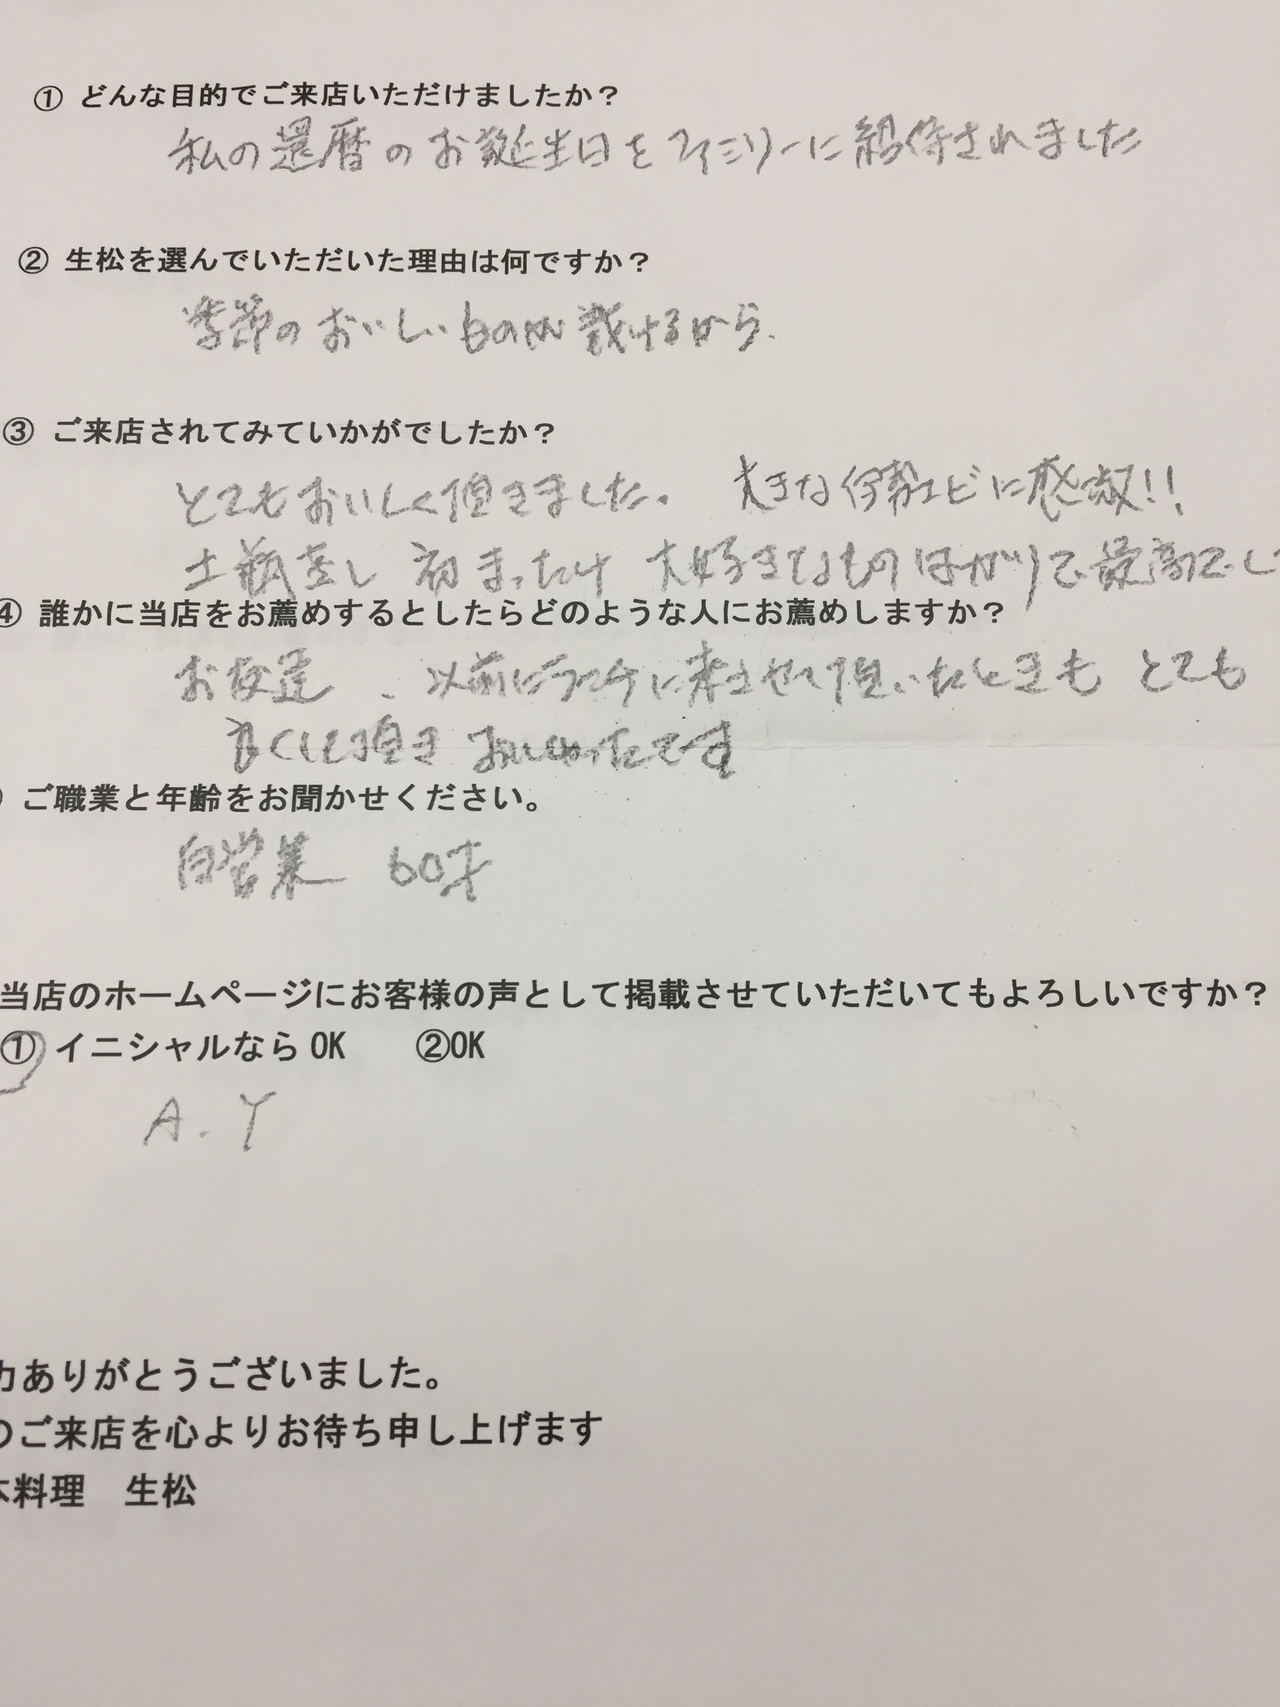 ① どんな目的でご来店いただけましたか？
私の還暦のお誕生日をファミリーに招待されました
② 生松を選んでいただいた理由は何ですか？
季節のおいしいものが戴けるから.
③ ご来店されてみていかがでしたか？
とてもおいしく頂きました。 大きな伊勢エビに感激!!
土瓶蒸し 初まったけ 大好きなものばかりで最高でし
④ 誰かに当店をお薦めするとしたらどのような人にお薦めしますか？
お友達 、以前にランチに来させて頂いたときも とても
良くして頂き おいしかったです
ご職業と年齢をお聞かせください。
自営業 60才
当店のホームページにお客様の声として掲載させていただいてもよろしいですか？
① イニシャルならOK ②OK
A.Y
力ありがとうございました。
のご来店を心よりお待ち申し上げます
本料理 生松